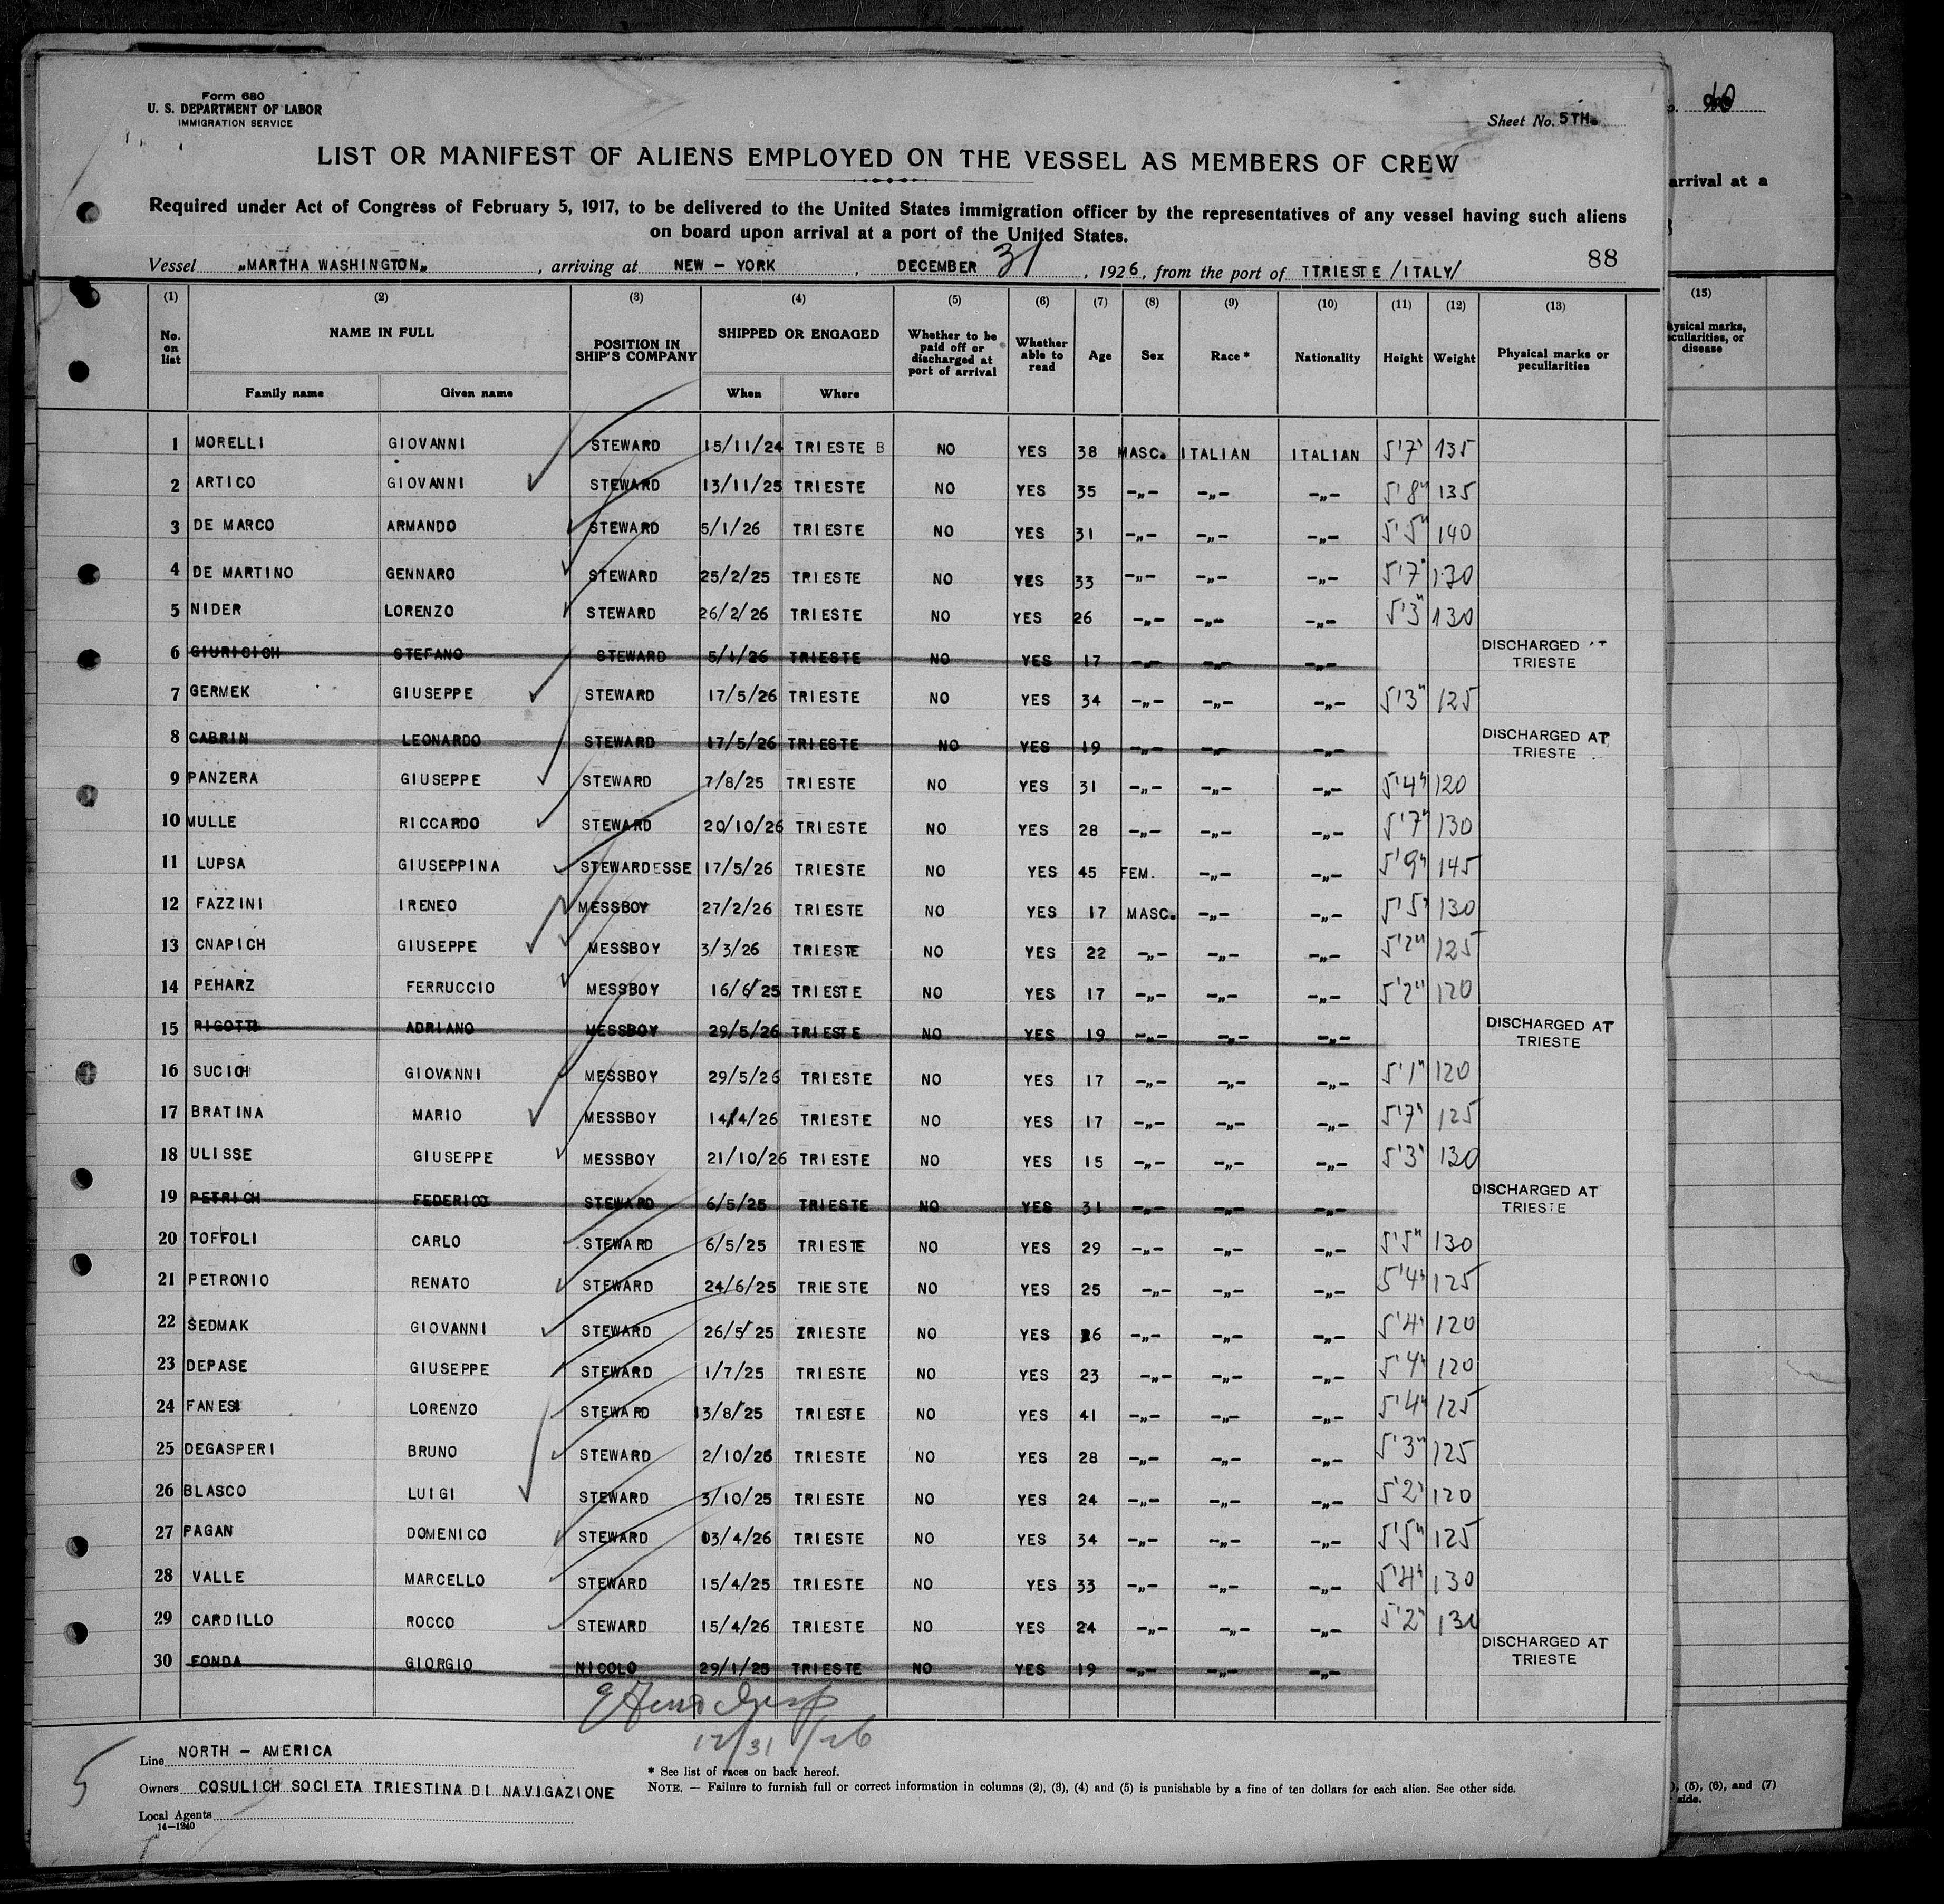 Form 680
U. S. DEPARTMENT OF LABOR
IMMIGRATION SERVICE
Sheet No. 5TH.
LIST OR MANIFEST OF ALIENS EMPLOYED ON THE VESSEL AS MEMBERS OF CREW
Required under Act of Congress of February 5, 1917, to be delivered to the United States immigration officer by the representatives of any vessel having such aliens
on board upon arrival at a port of the United States.
arrival at a
Vessel „MARTHA WASHINGTON„ , arriving at NEW – YORK , DECEMBER 31 , 1926, from the port of TTRIESTE /ITALY/ 88
(1) (2) (3) (4) (5) (6) (7) (8) (9) (10) (11) (12) (13) (15)
No. on list NAME IN FULL Family name Given name POSITION IN SHIP'S COMPANY SHIPPED OR ENGAGED When Where Whether to be paid off or discharged at port of arrival Whether able to read Age Sex Race* Nationality Height Weight Physical marks or peculiarities
1 MORELLI GIOVANNI STEWARD 15/11/24 TRIESTE B NO YES 38 MASC. ITALIAN ITALIAN 5'7" 135
2 ARTICO GIOVANNI STEWARD 13/11/25 TRIESTE NO YES 35 –„– –„– –„– 5'8" 135
3 DE MARCO ARMANDO STEWARD 5/1/26 TRIESTE NO YES 31 –„– –„– –„– 5'5" 140
4 DE MARTINO GENNARO STEWARD 25/2/25 TRIESTE NO YES 33 –„– –„– –„– 5'7" 130
5 NIDER LORENZO STEWARD 26/2/26 TRIESTE NO YES 26 –„– –„– –„– 5'3" 130
6 GIURICICH STEFANO STEWARD 5/1/26 TRIESTE NO YES 17 –„– –„– –„– DISCHARGED TRIESTE
7 GERMEK GIUSEPPE STEWARD 17/5/26 TRIESTE NO YES 34 –„– –„– –„– 5'3" 125
8 CABRIN LEONARDO STEWARD 17/5/26 TRIESTE NO YES 19 –„– –„– –„– DISCHARGED AT TRIESTE
9 PANZERA GIUSEPPE STEWARD 7/8/25 TRIESTE NO YES 31 –„– –„– –„– 5'4" 120
10 MULLE RICCARDO STEWARD 20/10/26 TRIESTE NO YES 28 –„– –„– –„– 5'7" 130
11 LUPSA GIUSEPPINA STEWARDESSE 17/5/26 TRIESTE NO YES 45 FEM. –„– –„– 5'9" 145
12 FAZZINI IRENEO MESSBOY 27/2/26 TRIESTE NO YES 17 MASC. –„– –„– 5'5" 130
13 CNAPICH GIUSEPPE MESSBOY 3/3/26 TRIESTE NO YES 22 –„– –„– –„– 5'2" 125
14 PEHARZ FERRUCCIO MESSBOY 16/6/25 TRIESTE NO YES 17 –„– –„– –„– 5'2" 120
15 RIGOTTI ADRIANO MESSBOY 29/5/26 TRIESTE NO YES 19 –„– –„– –„– DISCHARGED AT TRIESTE
16 SUCICH GIOVANNI MESSBOY 29/5/26 TRIESTE NO YES 17 –„– –„– –„– 5'1" 120
17 BRATINA MARIO MESSBOY 14/4/26 TRIESTE NO YES 17 –„– –„– –„– 5'7" 125
18 ULISSE GIUSEPPE MESSBOY 21/10/26 TRIESTE NO YES 15 –„– –„– –„– 5'3" 130
19 PETRICH FEDERICO STEWARD 6/5/25 TRIESTE NO YES 31 –„– –„– –„– DISCHARGED AT TRIESTE
20 TOFFOLI CARLO STEWARD 6/5/25 TRIESTE NO YES 29 –„– –„– –„– 5'5" 130
21 PETRONIO RENATO STEWARD 24/6/25 TRIESTE NO YES 25 –„– –„– –„– 5'4" 125
22 SEDMAK GIOVANNI STEWARD 26/5/25 TRIESTE NO YES 26 –„– –„– –„– 5'4" 120
23 DEPASE GIUSEPPE STEWARD 1/7/25 TRIESTE NO YES 23 –„– –„– –„– 5'4" 120
24 FANESI LORENZO STEWARD 13/8/25 TRIESTE NO YES 41 –„– –„– –„– 5'4" 125
25 DEGASPERI BRUNO STEWARD 2/10/26 TRIESTE NO YES 28 –„– –„– –„– 5'3" 125
26 BLASCO LUIGI STEWARD 3/10/25 TRIESTE NO YES 24 –„– –„– –„– 5'2" 120
27 PAGAN DOMENICO STEWARD 03/4/26 TRIESTE NO YES 34 –„– –„– –„– 5'5" 125
28 VALLE MARCELLO STEWARD 15/4/25 TRIESTE NO YES 33 –„– –„– –„– 5'4" 130
29 CARDILLO ROCCO STEWARD 15/4/26 TRIESTE NO YES 24 –„– –„– –„– 5'2" 130
30 FONDA GIORGIO NICOLO 29/1/25 TRIESTE NO YES 19 –„– –„– –„– DISCHARGED AT TRIESTE
12/31/26
5
Line NORTH – AMERICA
Owners COSULICH SOCIETA TRIESTINA DI NAVIGAZIONE
Local Agents
14—1240
* See list of races on back hereof.
NOTE. — Failure to furnish full or correct information in columns (2), (3), (4) and (5) is punishable by a fine of ten dollars for each alien. See other side.
(5), (6), and (7)
side.